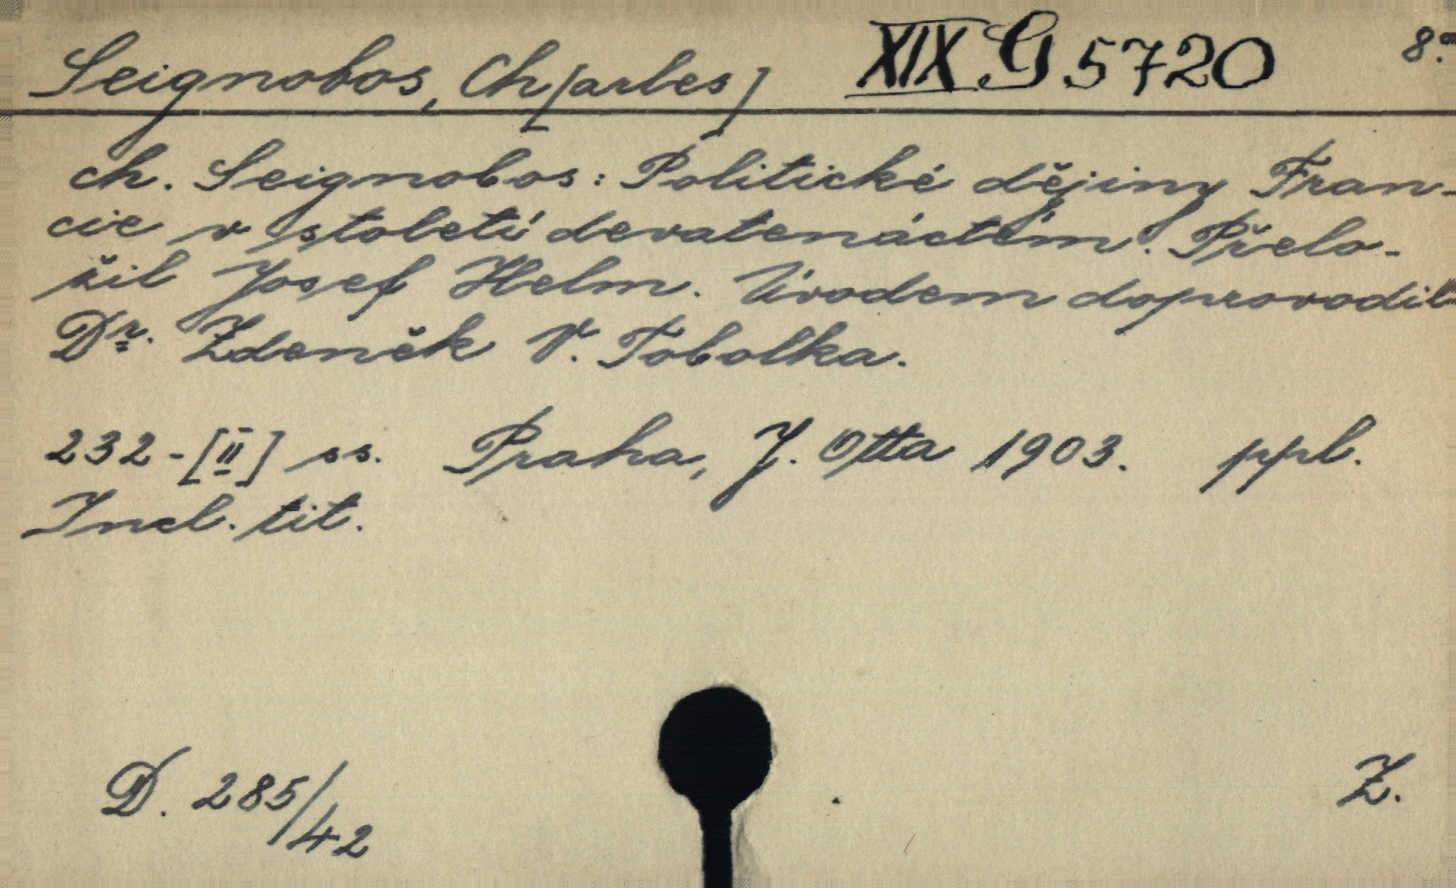 Seignobos, Ch[arles] XIX G 5720 8°.
Ch. Seignobos: Politické dějiny Fran-
cie v století devatenáctém. Přelo-
žil Josef Helm. Úvodem doprovodil
Dr. Zdeněk V. Tobolka.
232-[II] ss. Praha, J. Otta 1903. ppl.
Incl. tit.
D. 285/42 Z.